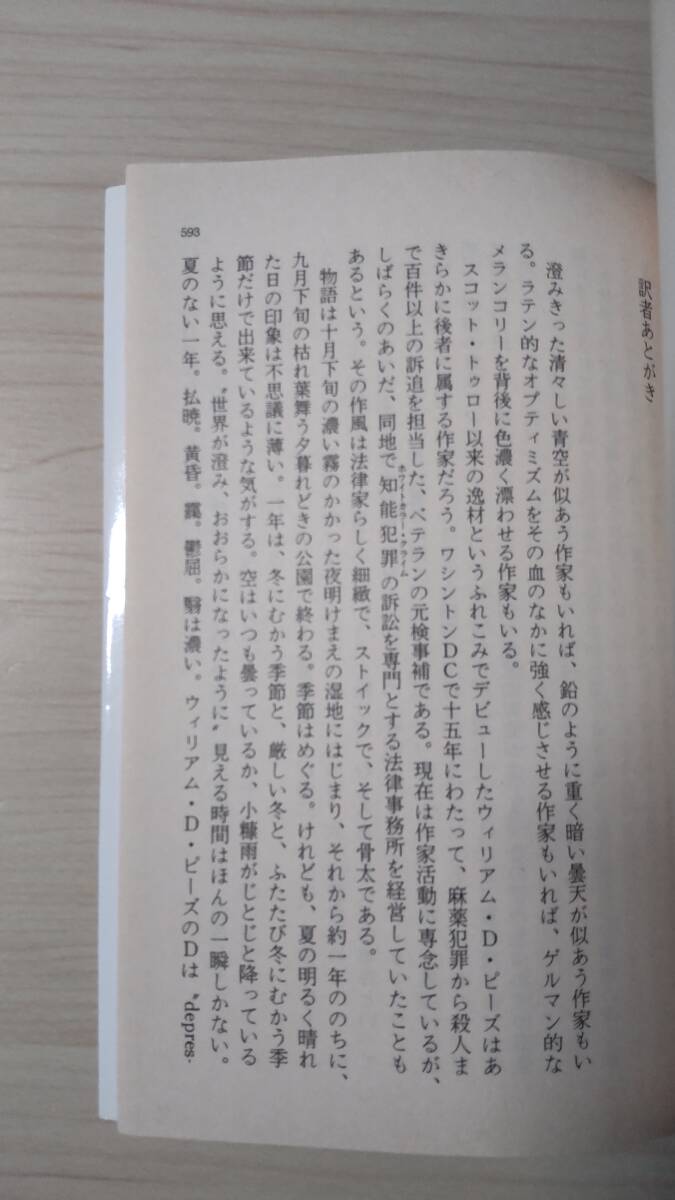 訳者あとがき
澄みきった清々しい青空が似あう作家もいれば、鉛のように重く暗い曇天が似あう作家もい
る。ラテン的なオプティミズムをその血のなかに強く感じさせる作家もいれば、ゲルマン的な
メランコリーを背後に色濃く漂わせる作家もいる。
スコット・トゥロー以来の逸材というふれこみでデビューしたウィリアム・D・ピーズはあ
きらかに後者に属する作家だろう。ワシントンDCで十五年にわたって、麻薬犯罪から殺人ま
で百件以上の訴追を担当した、ベテランの元検事補である。現在は作家活動に専念しているが、
しばらくのあいだ、同地で知能犯罪の訴訟を専門とする法律事務所を経営していたことも
ホワイトカラー・クライム
あるという。その作風は法律家らしく細緻で、ストイックで、そして骨太である。
物語は十月下旬の濃い霧のかかった夜明けまえの湿地にはじまり、それから約一年ののちに、
九月下旬の枯れ葉舞う夕暮れどきの公園で終わる。季節はめぐる。けれども、夏の明るく晴れ
た日の印象は不思議に薄い。一年は、冬にむかう季節と、厳しい冬と、ふたたび冬にむかう季
節だけで出来ているような気がする。空はいつも曇っているか、小糠雨がじとじと降っている
ように思える。〝世界が澄み、おおらかになったように〟見える時間はほんの一瞬しかない。
夏のない一年。払暁。黄昏。靄。鬱屈。翳は濃い。ウィリアム・D・ピーズのDは〝depres-
593